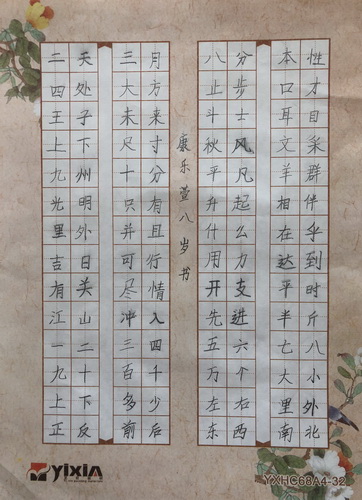 二天三月八分本性
四处大方止步口才
王子未来斗士耳目
上下尺寸秋风文采
九州十分平凡羊群
光明只有升起相伴
里外并且什么在乎
吉日可行用力达到
有关尽情开支平时
江山冲入先进半斤
一二三四五六七八
九十百千万个大小
上下多少左右里外
正反前后东西南北
康乐萱八岁书
YIXIN
YXHC68A4-32